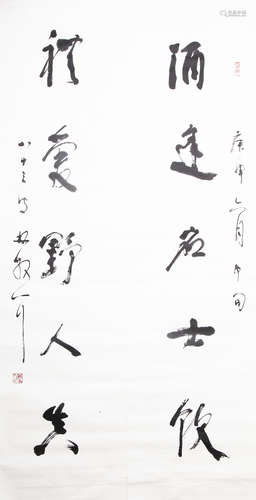 酒逢士飲
庚申六月中旬
禮愛野人真
八十三叟林散之